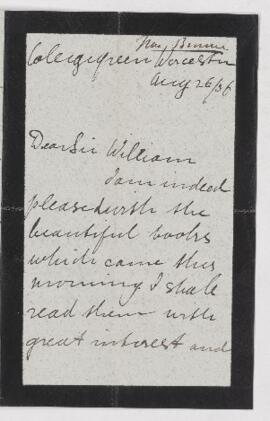 Worcester
Aug 26/86
Dear Sir William
I am indeed
pleased with the
beautiful books
which came this
morning I shall
read them with
great interest and